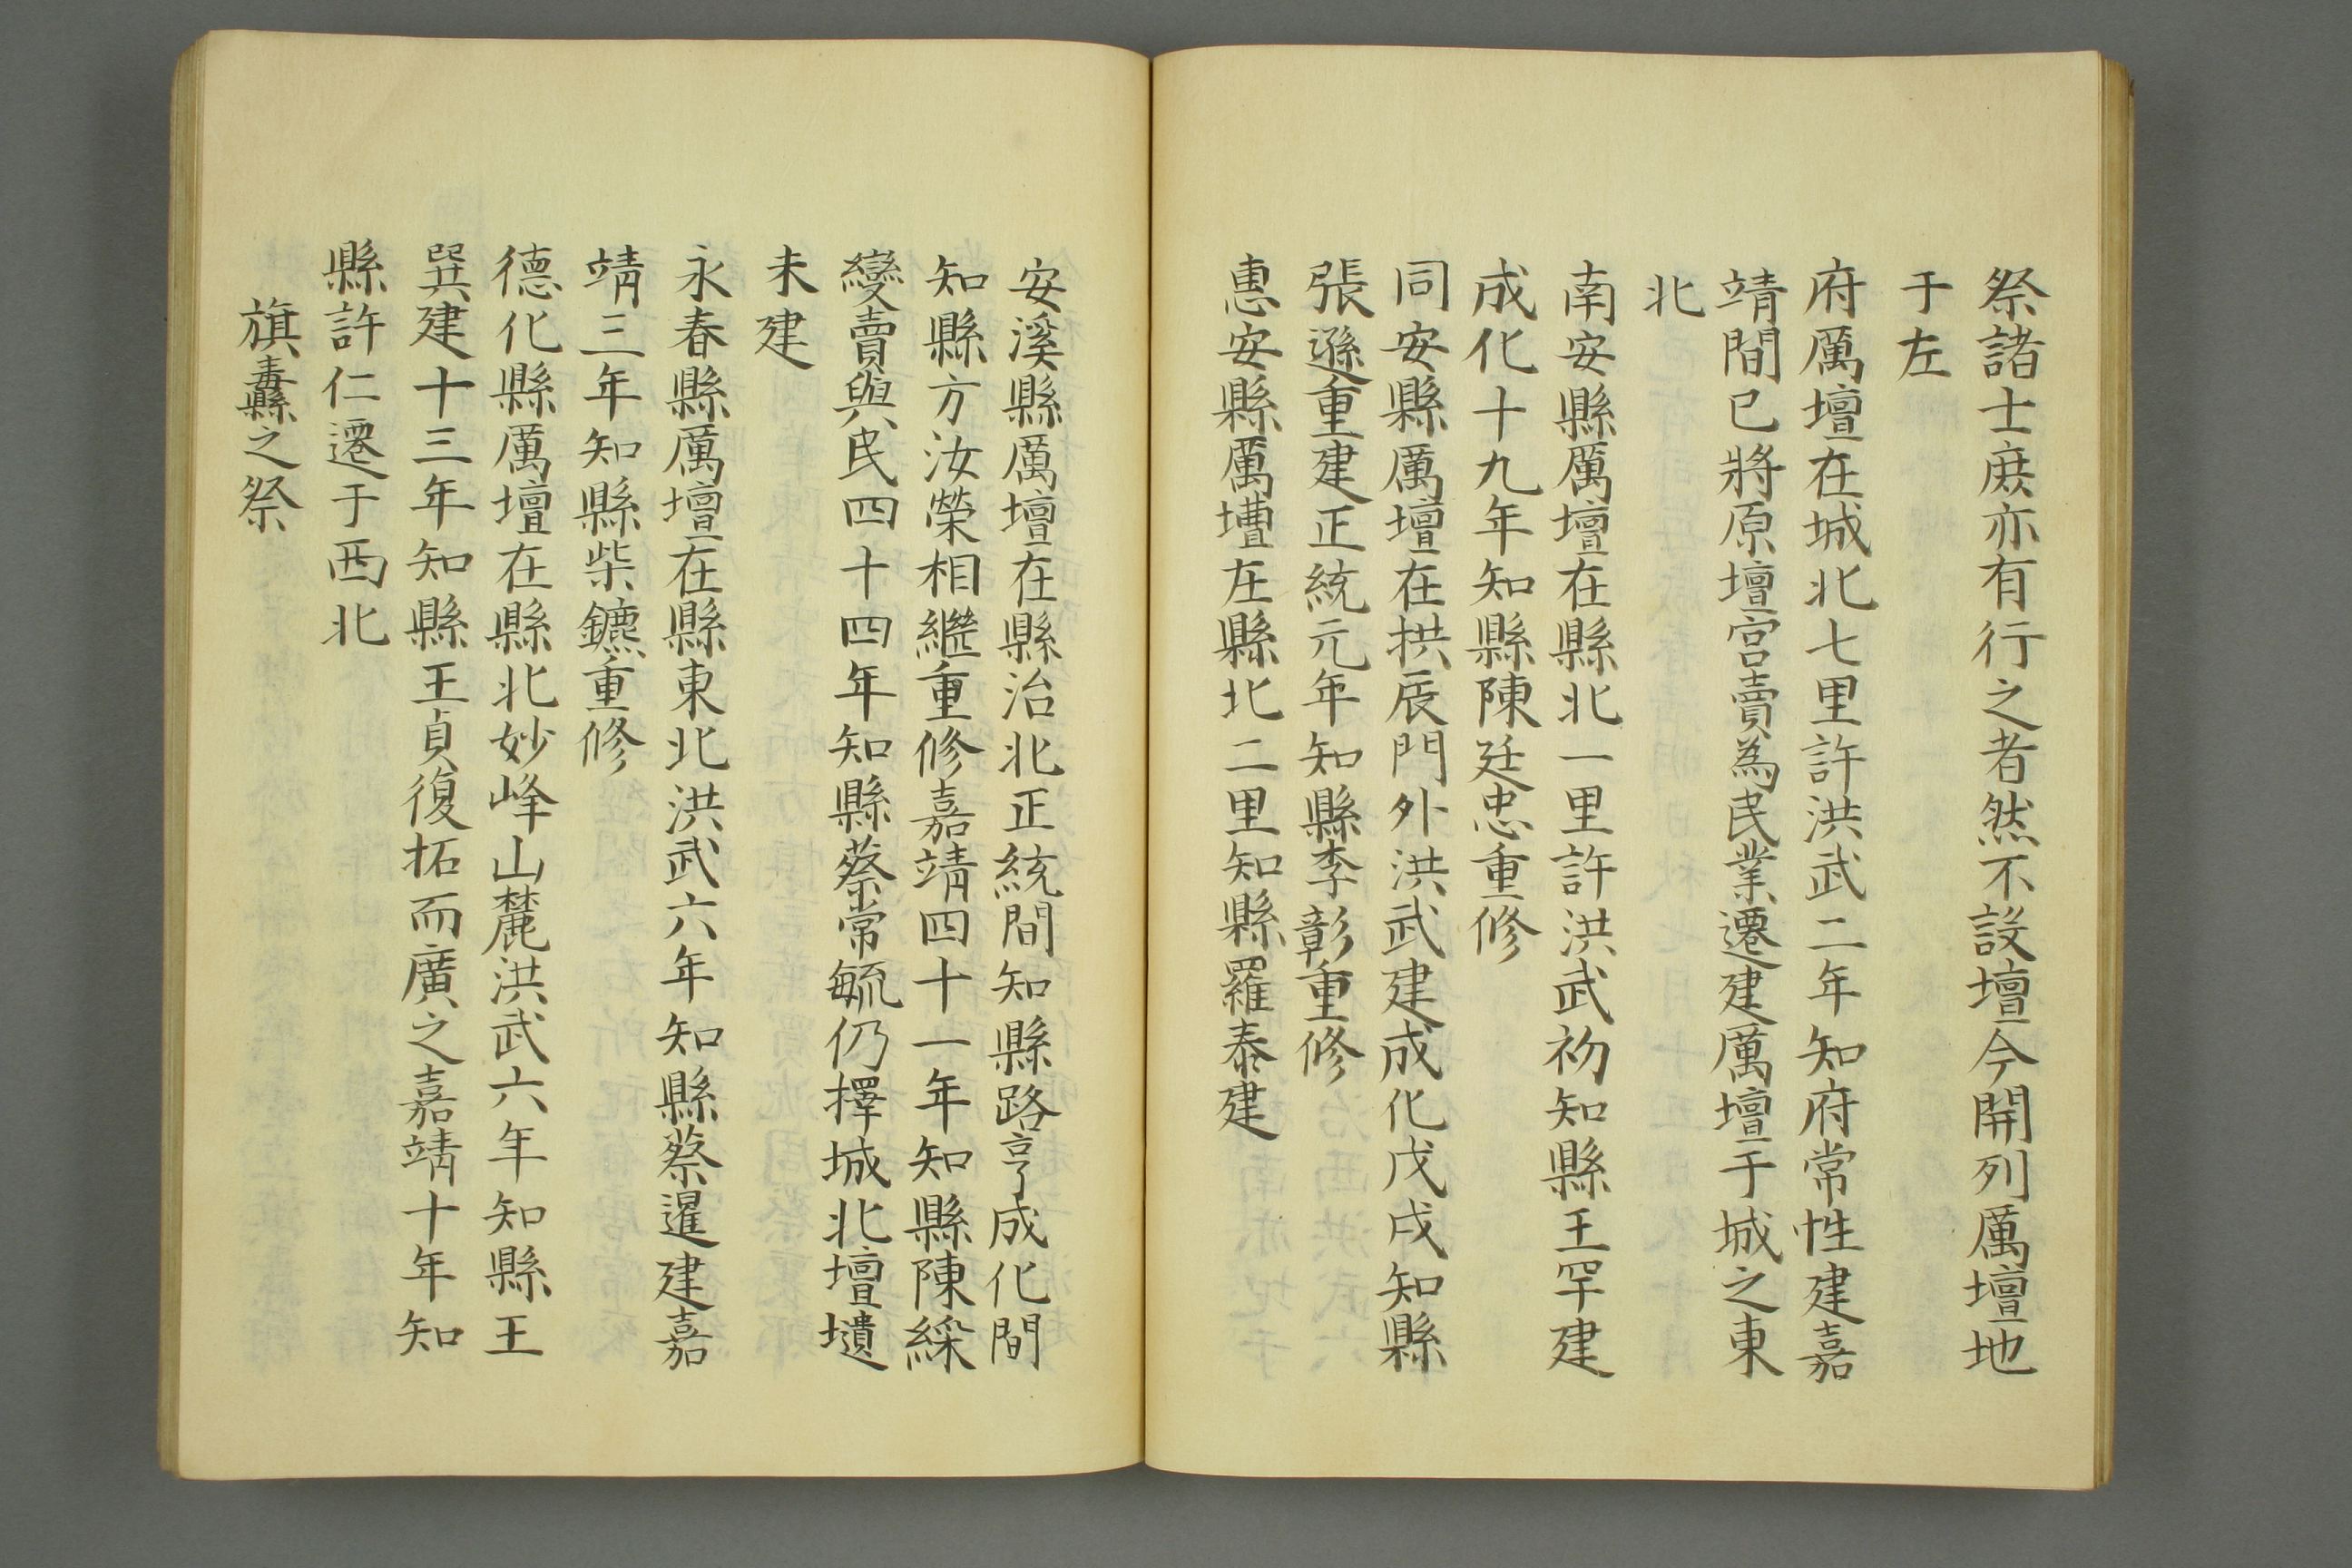 祭諸士庶亦有行之者然不設壇今開列厲壇地
于左
府厲壇在城北七里許洪武二年知府常性建嘉
靖間已將原壇宫賣為民業遷建厲壇于城之東
北
南安縣厲壇在縣北一里許洪武初知縣王罕建
成化十九年知縣陳廷忠重修
同安縣厲壇在拱辰門外洪武建成化戊戌知縣
張遜重建正統元年知縣李彰重修
惠安縣厲壇在縣北二里知縣羅泰建
安溪縣厲壇在縣治北正統間知縣路亨成化間
知縣方汝榮相繼重修嘉靖四十一年知縣陳綵
變賣與民四十四年知縣蔡常毓仍擇城北壇壝
未建
永春縣厲壇在縣東北洪武六年知縣蔡暹建嘉
靖三年知縣柴鑣重修
德化縣厲壇在縣北妙峰山麓洪武六年知縣王
巽建十三年知縣王貞復拓而廣之嘉靖十年知
縣許仁遷于西北
旗纛之祭